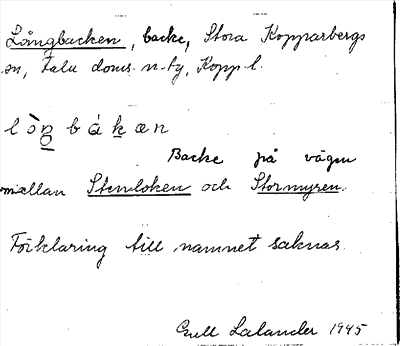 Långbacken, backe, Stora Kopparbergs
sn, Falu doms. n. tg, Kopp. l.
lὸŋ b á k æn
Backe på vägen
mellan Stenloken och Stormyren.
Förklaring till namnet saknas.
Gull Lalander 1945